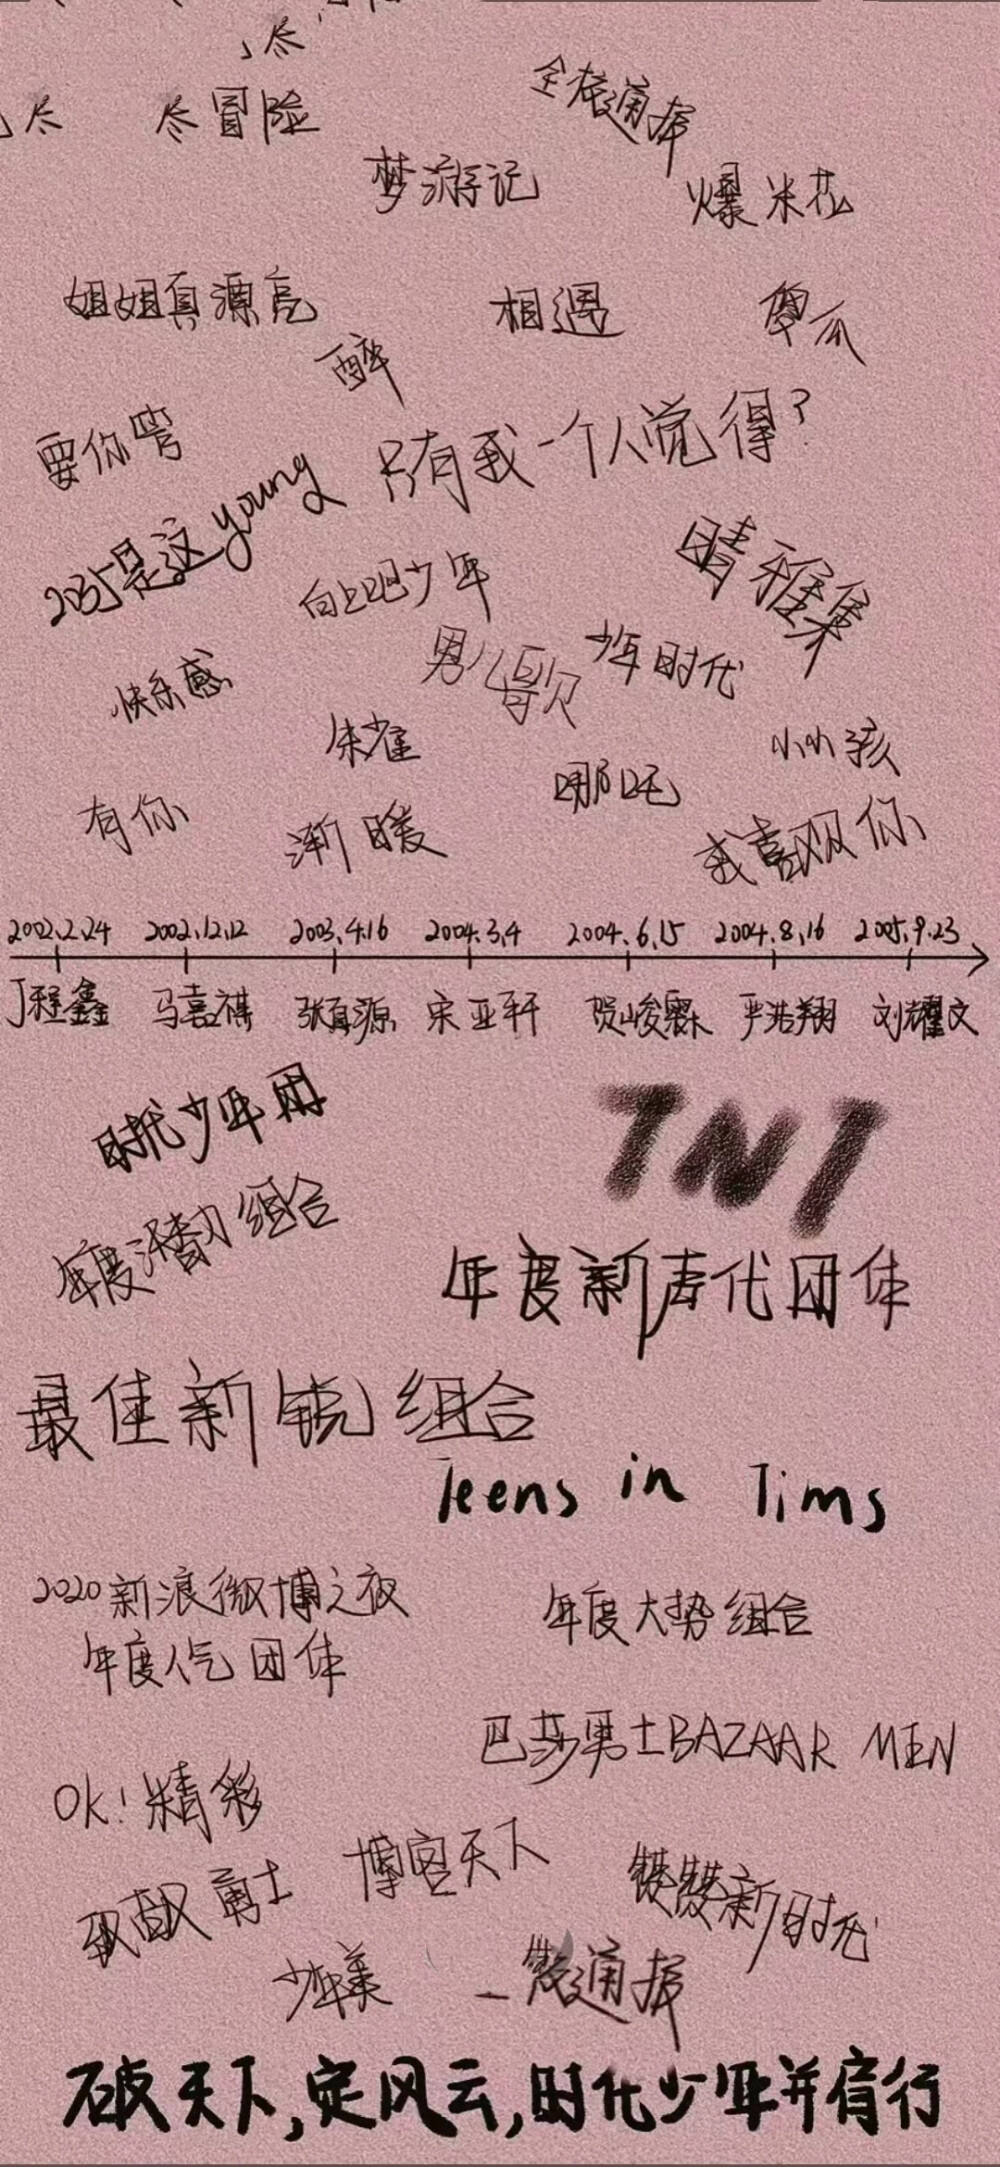 尽
尽 尽冒险
全校通报
梦游记
爆米花
姐姐真源亮
相遇
傻瓜
醉
要你管
只有我一个人觉得?
2035是这young
向上吧少年
晴雅集
男儿歌
少年时代
快乐感
朱雀
小小孩
哪吒
有你
渐暖
我喜欢你
2002.2.24 2002.12.12 2003.4.16 2004.3.4 2004.6.15 2004.8.16 2005.9.23
丁程鑫 马嘉祺 张真源 宋亚轩 贺峻霖 严浩翔 刘耀文
时代少年团
TNT
年度潜力组合
年度新声代团体
最佳新锐组合
Teens in Tims
2020新浪微博之夜
年度人气团体
年度大势组合
巴莎男士BAZAAR MEN
OK!精彩
博客天下
勇士
新时代
少年美
通报
破天下,定风云,时代少年并肩行